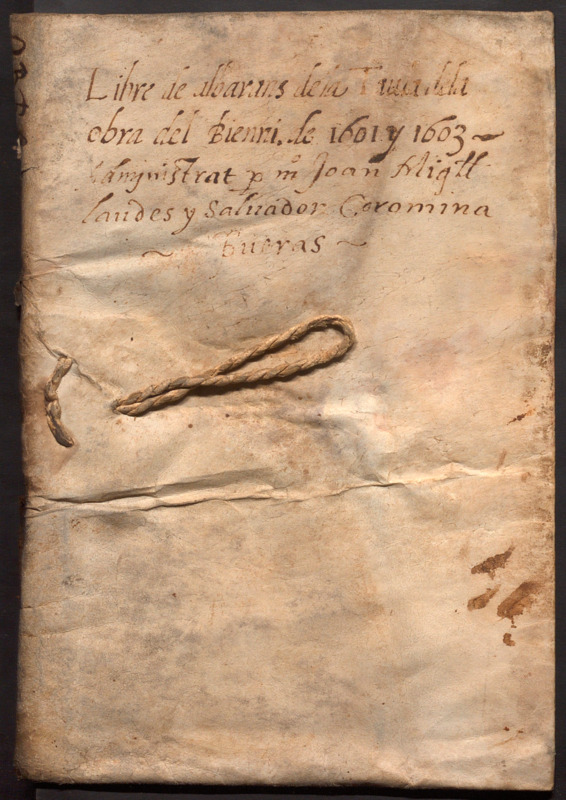 Libre de albarans dela
obra del Bienni, de 1601 y 1603
administrat p mº Joan Miqll
laudes y Salvador Coromina